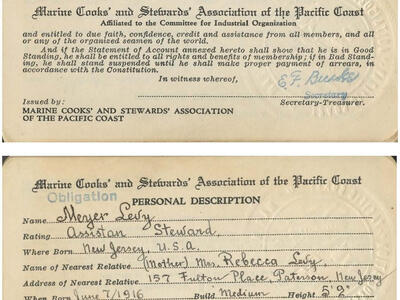 Marine Cooks' and Stewards' Association of the Pacific Coast
Affiliated to the Committee for Industrial Organization
and entitled to due faith, confidence, credit and assistance from all members, and all
or any of the organized seamen of the world.
And if the Statement of Account annexed hereto shall show that he is in Good
Standing, he shall be entitled to all rights and benefits of membership; if in Bad Stand-
ing, he shall stand suspended until he shall make proper payment of arrears, in
accordance with the Constitution.
In witness whereof,
E. F.
Secretary
Issued by:
Secretary-Treasurer.
MARINE COOKS' AND STEWARDS' ASSOCIATION
OF THE PACIFIC COAST
Marine Cooks' and Stewards' Association of the Pacific Coast
Obligation
PERSONAL DESCRIPTION
Name Meyer Levy
Rating Assistan Steward
Where Born New Jersey, U.S.A.
Name of Nearest Relative (Mother) Mrs. Rebecca Levy,
Address of Nearest Relative 157 Fulton Place, Paterson, New Jersey
When Born June 7/1916 Build Medium Height 5'9"